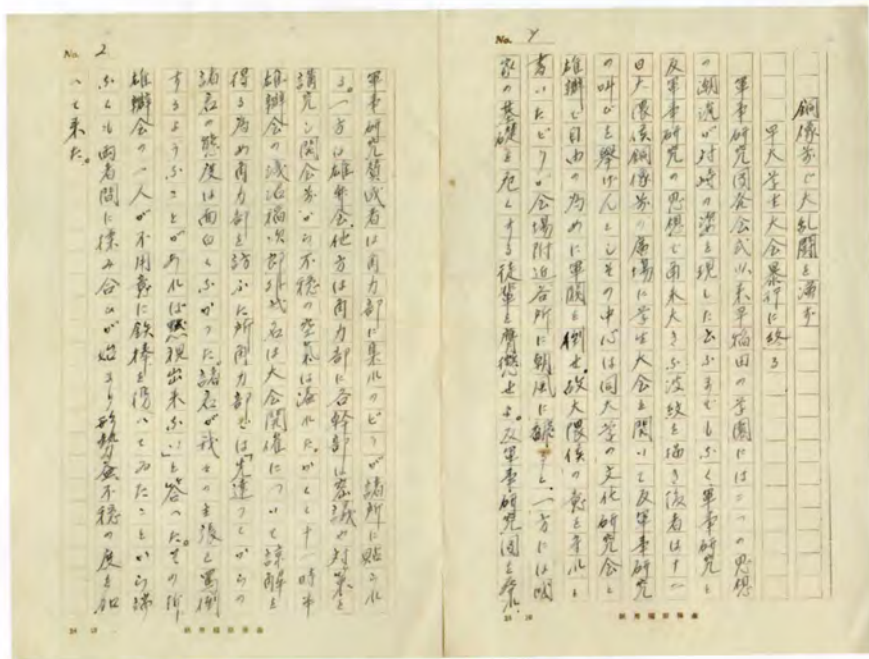 No. 1
銅像前に大乱闘を演ず
早大学生大会暴行に終る
軍事研究団発会式以来早稲田の学園には二つの思想
の潮流が対峙の姿を現した云ふまでもなく軍事研究と
反軍事研究の思想で両来大きな波紋を描き後者は十二
日大隈侯銅像前の広場に学生大会を開いて反軍事研究
の叫びを挙げんとしその中心は同大学の文化研究会と
雄辯で自由の為めに軍閥を倒せ、故大隈侯の意を守れと
書いたビラが会場附近各所に朝風に翻り、一方には国
家の基礎を危くする徒輩を膺懲せよ。反軍事研究団を葬れ、
No. 2
軍事研究賛成者は角力部に集れのビラが諸所に貼られ
る。一方は雄弁会、他方は角力部に各幹部は密議や対策を
講究し開会前から不穏の空気は溢れた。かくて十一時半
雄辯会の浅沼稲次郎外弐名は大会開催について諒解を
得る為め角力部を訪ふた所角力部では「先達つてからの
諸君の態度は面白くなかつた。諸君が我々の主張を罵倒
するようなことがあれば黙視出来ない」と答へた。その際
雄辯会の一人が不用意に鉄棒を携へてゐたことから端
なくも両者間に揉み合ひが始まり形勢益不穏の度を加
へて来た。